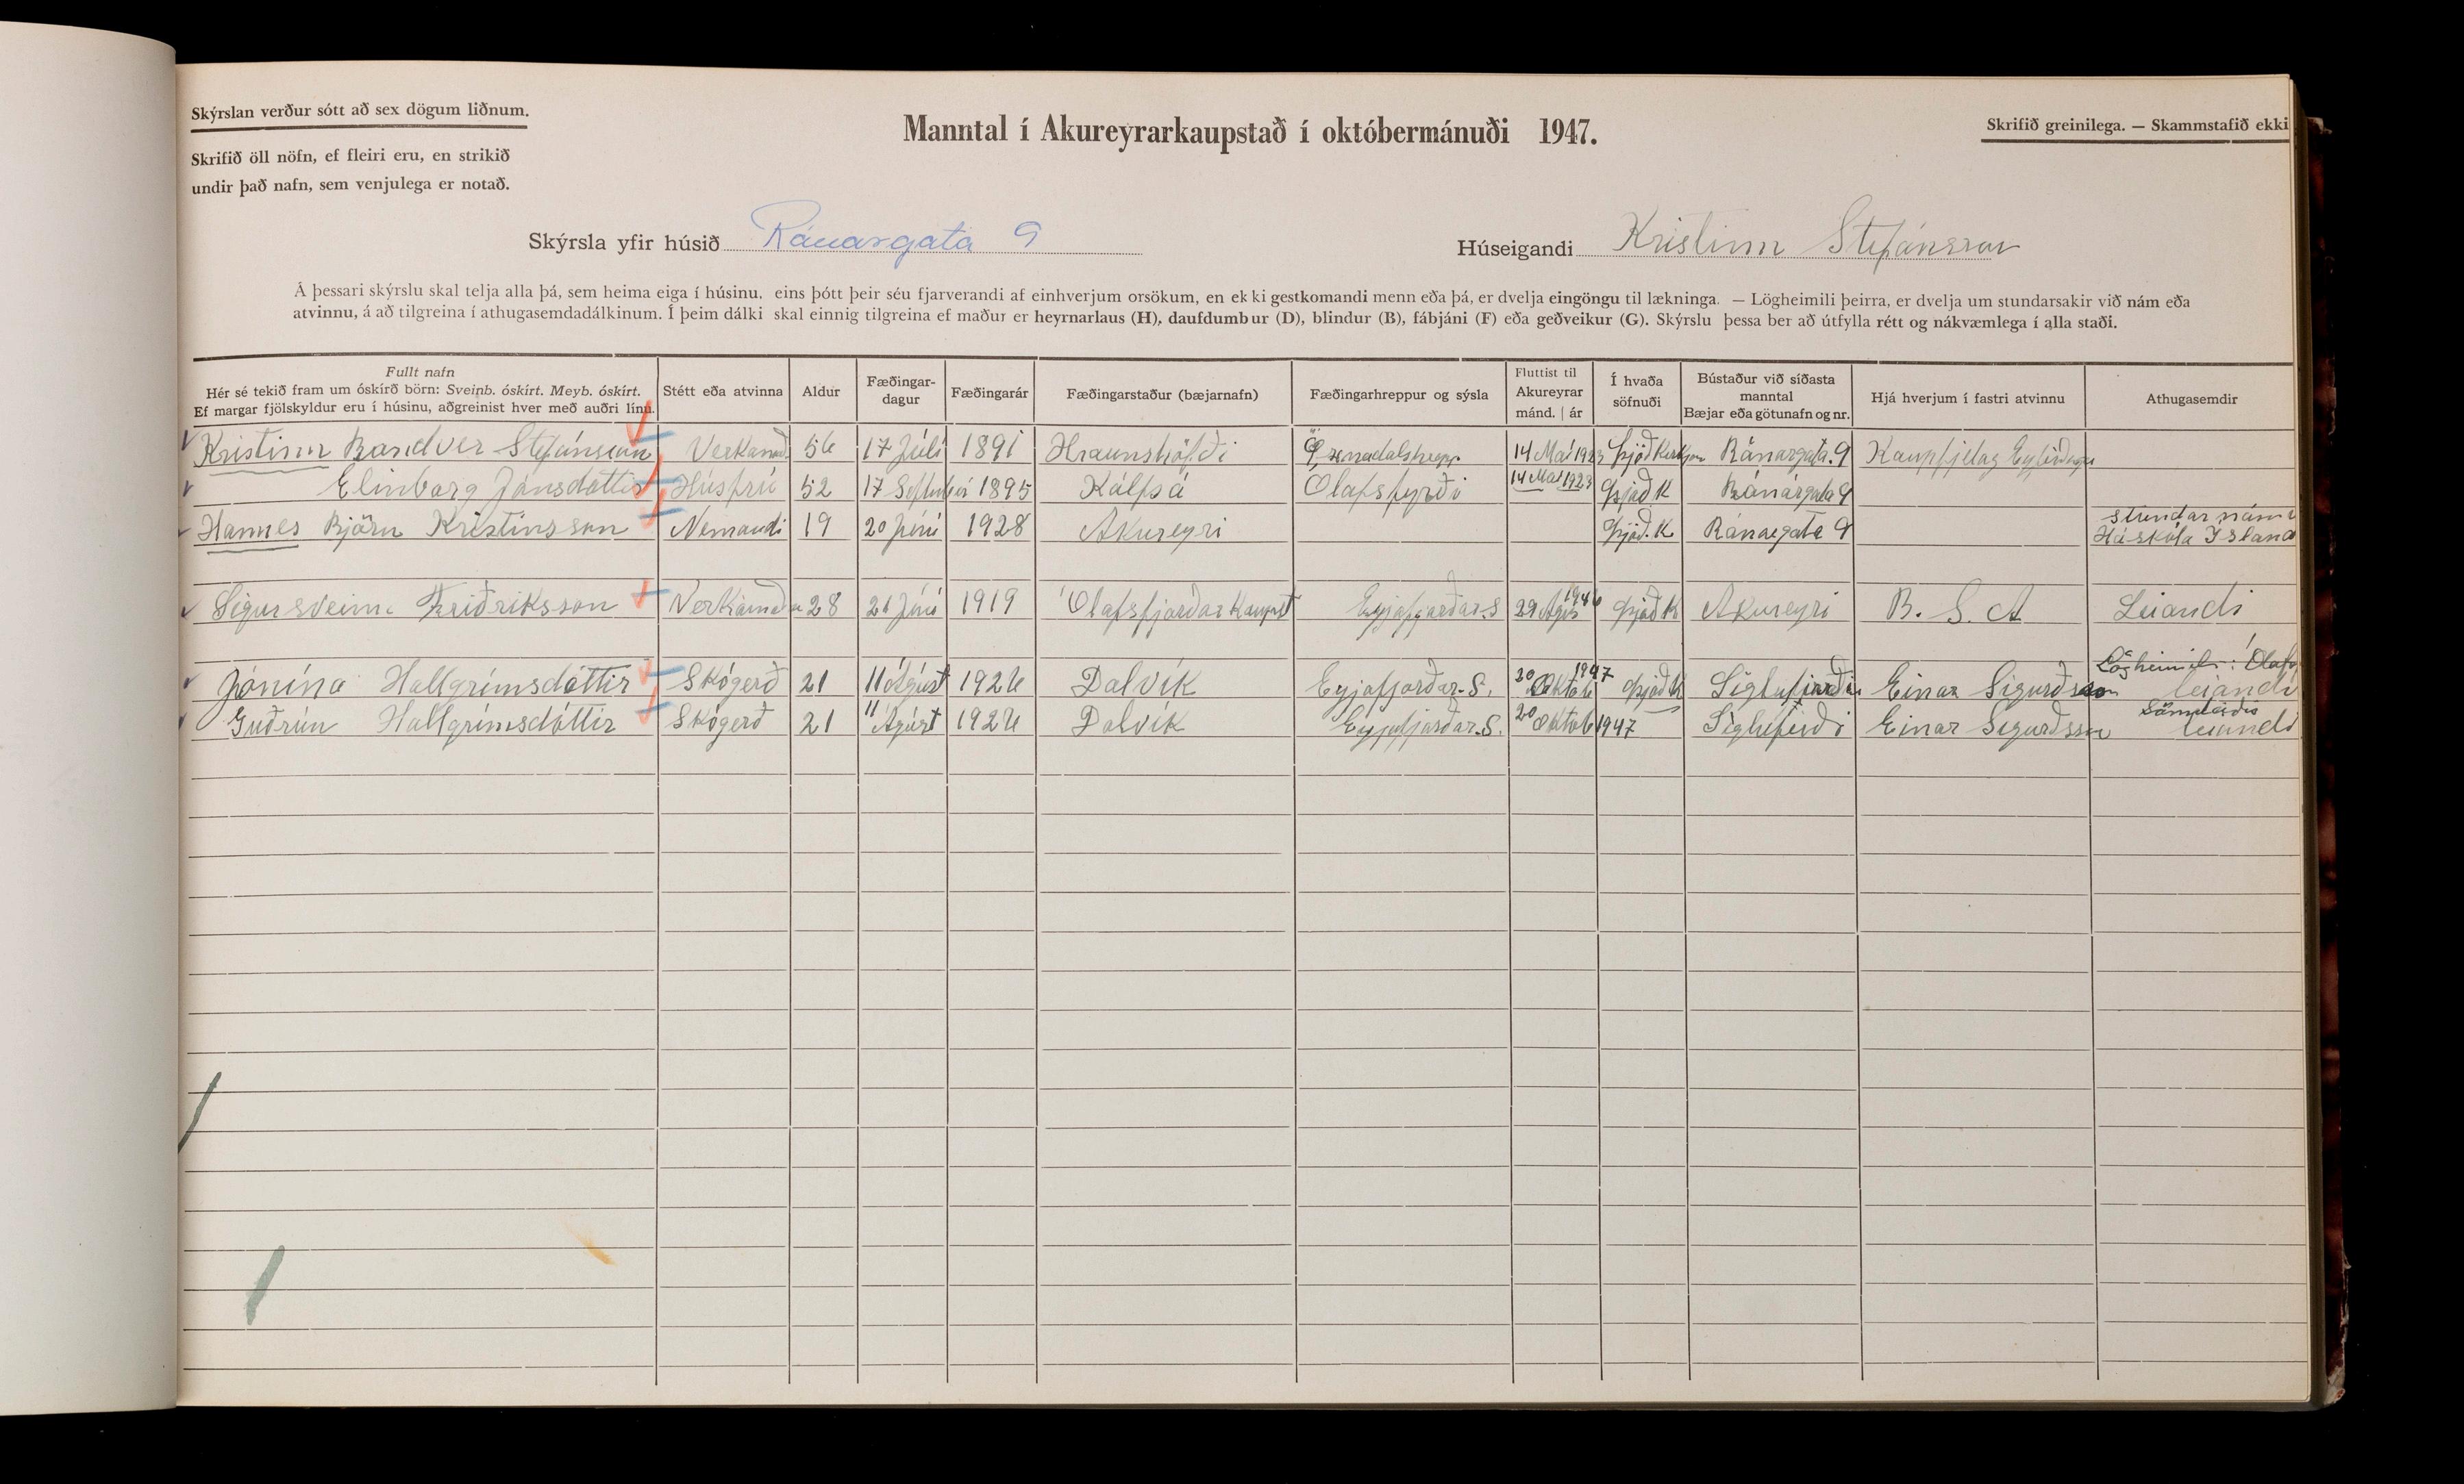 Skýrslan verður sótt að sex dögum liðnum.
Skrifið öll nöfn, ef fleiri eru, en strikið
undir það nafn, sem venjulega er notað.
Manntal í Akureyrarkaupstað í októbermánuði 1947.
Skrifið greinilega. — Skammstafið ekki
Skýrsla yfir húsið Ránargata 9
Húseigandi Kristinn Stefánsson
Á þessari skýrslu skal telja alla þá, sem heima eiga í húsinu, eins þótt þeir séu fjarverandi af einhverjum orsökum, en ekki gestkomandi menn eða þá, er dvelja eingöngu til lækninga. — Lögheimili þeirra, er dvelja um stundarsakir við nám eða
atvinnu, á að tilgreina í athugasemdadálkinum. Í þeim dálki skal einnig tilgreina ef maður er heyrnarlaus (H), daufdumbur (D), blindur (B), fábjáni (F) eða geðveikur (G). Skýrslu þessa ber að útfylla rétt og nákvæmlega í alla staði.
Fullt nafn
Hér sé tekið fram um óskírð börn: Sveinb. óskírt. Meyb. óskírt.
Ef margar fjölskyldur eru í húsinu, aðgreinist hver með auðri línu.
Stétt eða atvinna
Aldur
Fæðingar-
dagur
Fæðingarár
Fæðingarstaður (bæjarnafn)
Fæðingarhreppur og sýsla
Fluttist til
Akureyrar
mánd. | ár
Í hvaða
söfnuði
Bústaður við síðasta
manntal
Bæjar eða götunafn og nr.
Hjá hverjum í fastri atvinnu
Athugasemdir
Kristinn Randver Stefánsson Verkamað 56 17 Júlí 1891 Hraunshöfði Öxnadalshrepp 14 Maí 1923 Þjóðkirkjan Ránargata 9 Kaupfjelag Eyfirðinga
Elinborg Jónsdóttir Húsfrú 52 17 September 1895 Kálfsá Ólafsfyrði 14 Maí 1923 Þjóð K Ránárgata 9
Hannes Björn Kristinsson Nemandi 19 20 Júní 1928 Akureyri Þjóð. K Ránargata 9 stundar nám í
Háskóla Ísland
Sigursveinn Friðriksson Verkamaður 28 21 Júní 1919 Ólafsfjarðarkaupst Eyjafjarðar.S 29 Ágús 1946 Þjóð K Akureyri B. S. A Leiandi
Jónína Hallgrímsdóttir Skógerð 21 11 Ágúst 1926 Dalvík Eyjafjarðar-S. 20 Októb 1947 Þjóð K Siglufirði Einar Sigurðsson Lögheimili: Ólafs
leiandi
Guðrún Hallgrímsdóttir Skógerð 21 11 Ágúst 1926 Dalvík Eyjafjarðar.S. 20 Októb 1947 Siglufirði Einar Sigurðsson Sömuleiðis
leiandi